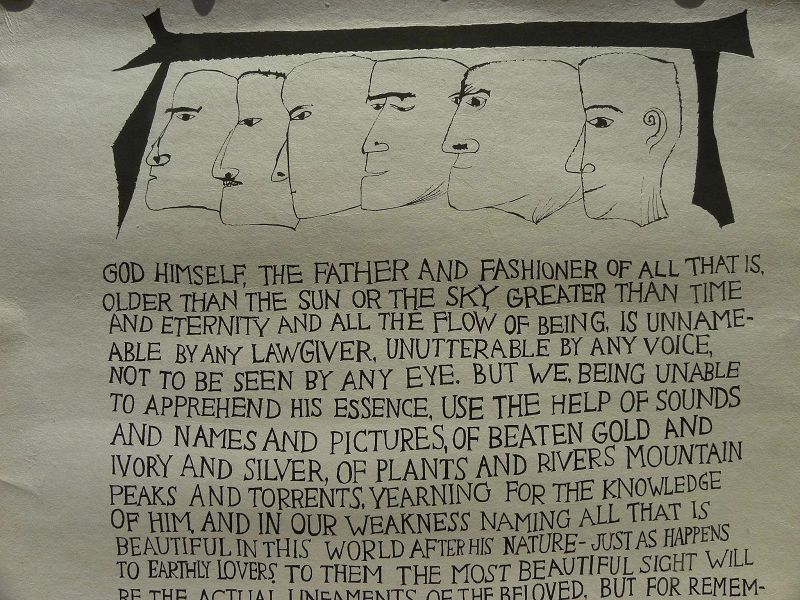 GOD HIMSELF, THE FATHER AND FASHIONER OF ALL THAT IS,
OLDER THAN THE SUN OR THE SKY, GREATER THAN TIME
AND ETERNITY AND ALL THE FLOW OF BEING, IS UNNAME-
ABLE BY ANY LAWGIVER, UNUTTERABLE BY ANY VOICE,
NOT TO BE SEEN BY ANY EYE. BUT WE, BEING UNABLE
TO APPREHEND HIS ESSENCE, USE THE HELP OF SOUNDS
AND NAMES AND PICTURES, OF BEATEN GOLD AND
IVORY AND SILVER, OF PLANTS AND RIVERS MOUNTAIN
PEAKS AND TORRENTS, YEARNING FOR THE KNOWLEDGE
OF HIM, AND IN OUR WEAKNESS NAMING ALL THAT IS
BEAUTIFUL IN THIS WORLD AFTER HIS NATURE- JUST AS HAPPENS
TO EARTHLY LOVERS, TO THEM THE MOST BEAUTIFUL SIGHT WILL
BE THE ACTUAL LINEAMENTS OF THE BELOVED, BUT FOR REMEM-